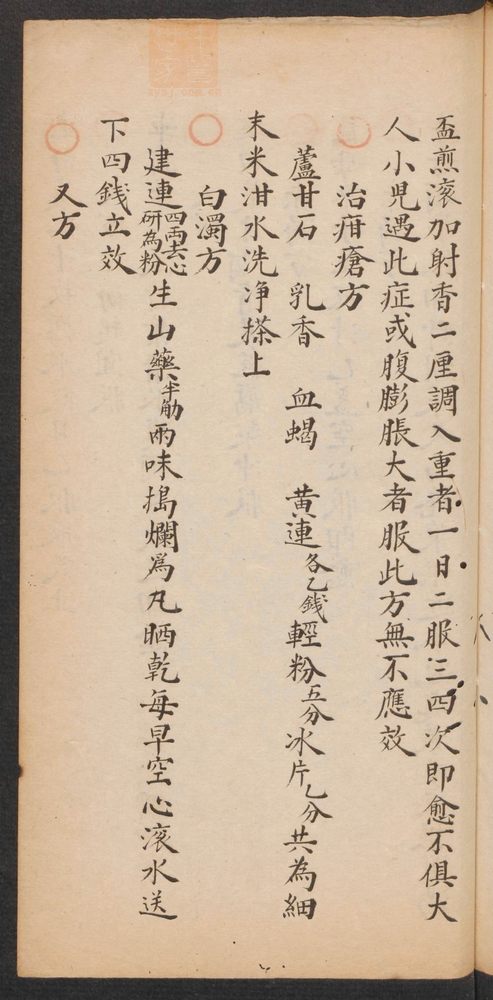 盃煎滚加射香二厘調入重者一日二服三四次即愈不俱大
人小兒遇此症或腹膨脹大者服此方無不應效
治疳瘡方
蘆甘石 乳香 血蝎 黄連各乙錢輕粉五分冰片乙分共為細
末米泔水洗净搽上
白濁方
建連四兩去心研為粉生山藥半觔兩味搗爛爲凡晒乾每早空心滚水送
下四錢立效
又方